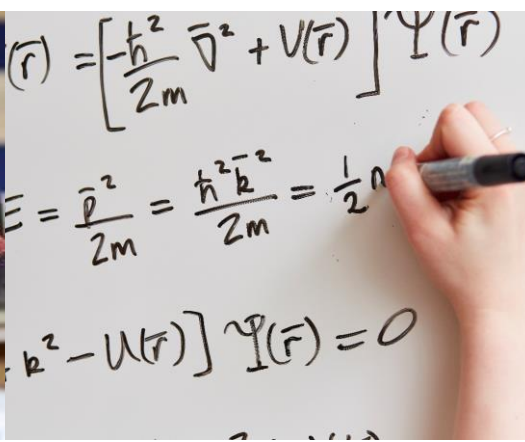 (r̄) = [-ħ²/2m ∇̄² + V(r̄)] Ψ(r̄)
E = p̄²/2m = ħ²k̄²/2m = ½ m
k² - U(r̄)] Ψ(r̄) = 0